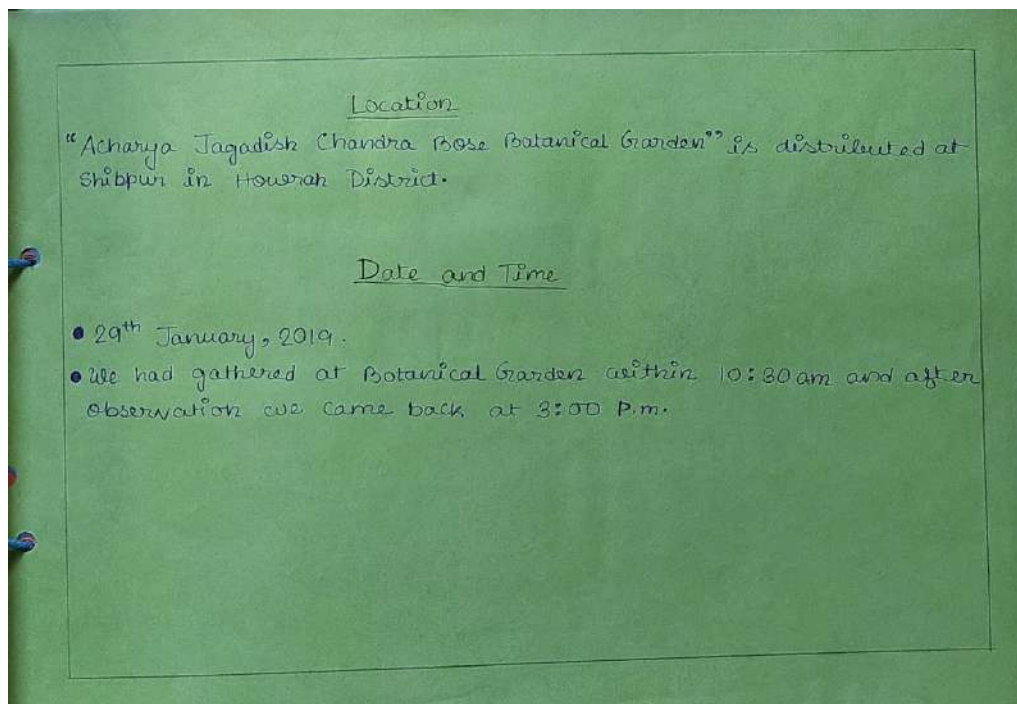 Location
"Acharya Jagadish Chandra Bose Botanical Garden" is distributed at
Shibpur in Howrah District.
Date and Time
• 29th January, 2019.
• We had gathered at Botanical Garden within 10:30 am and after
observation we came back at 3:00 P.m.